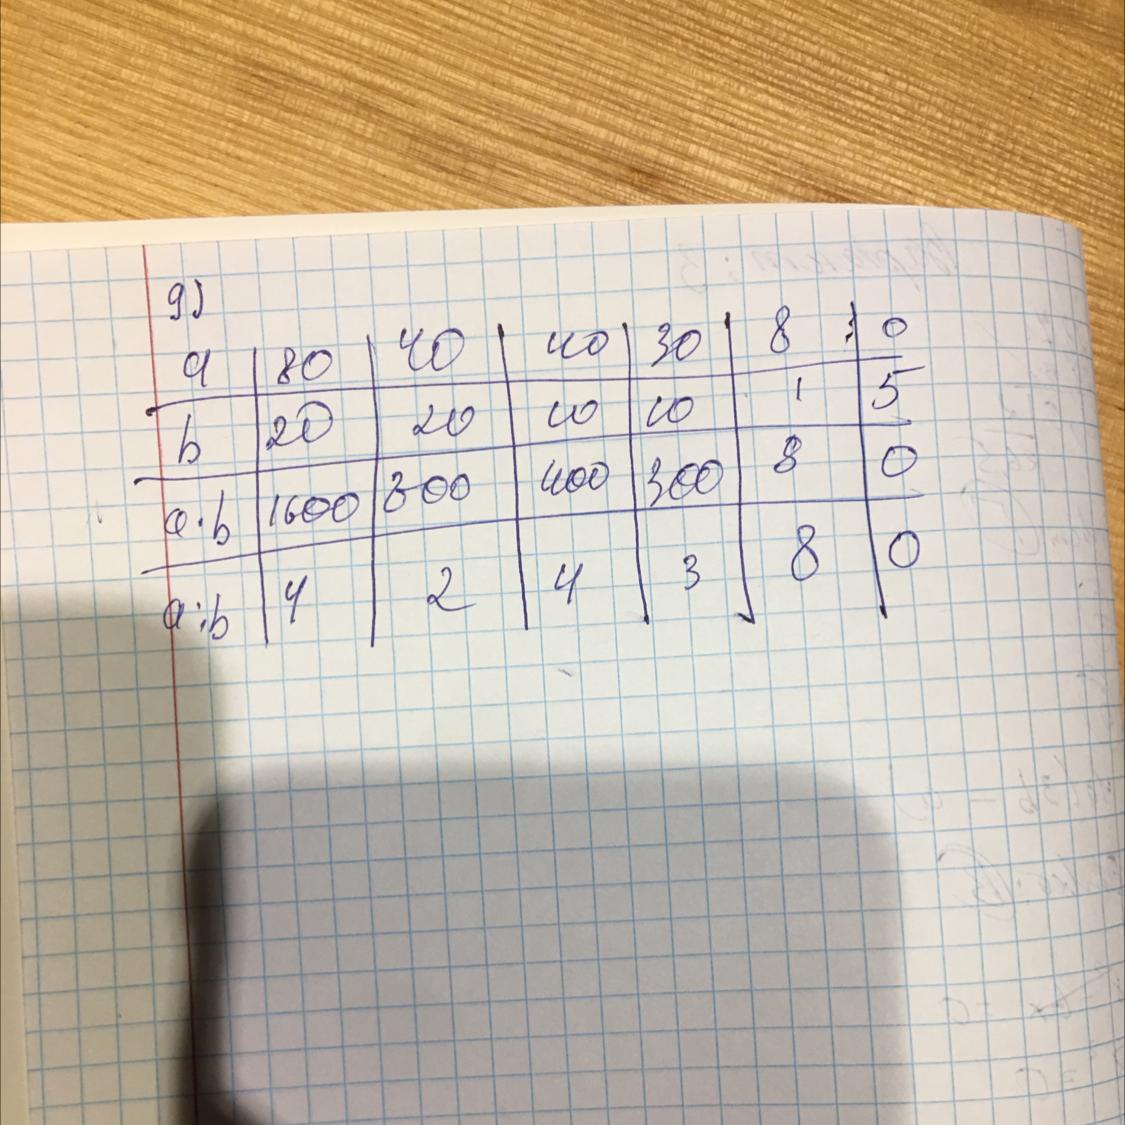 9)
a | 80 | 40 | 40 | 30 | 8 | 0
b | 20 | 20 | 10 | 10 | 1 | 5
a·b | 1600 | 800 | 400 | 300 | 8 | 0
a:b | 4 | 2 | 4 | 3 | 8 | 0